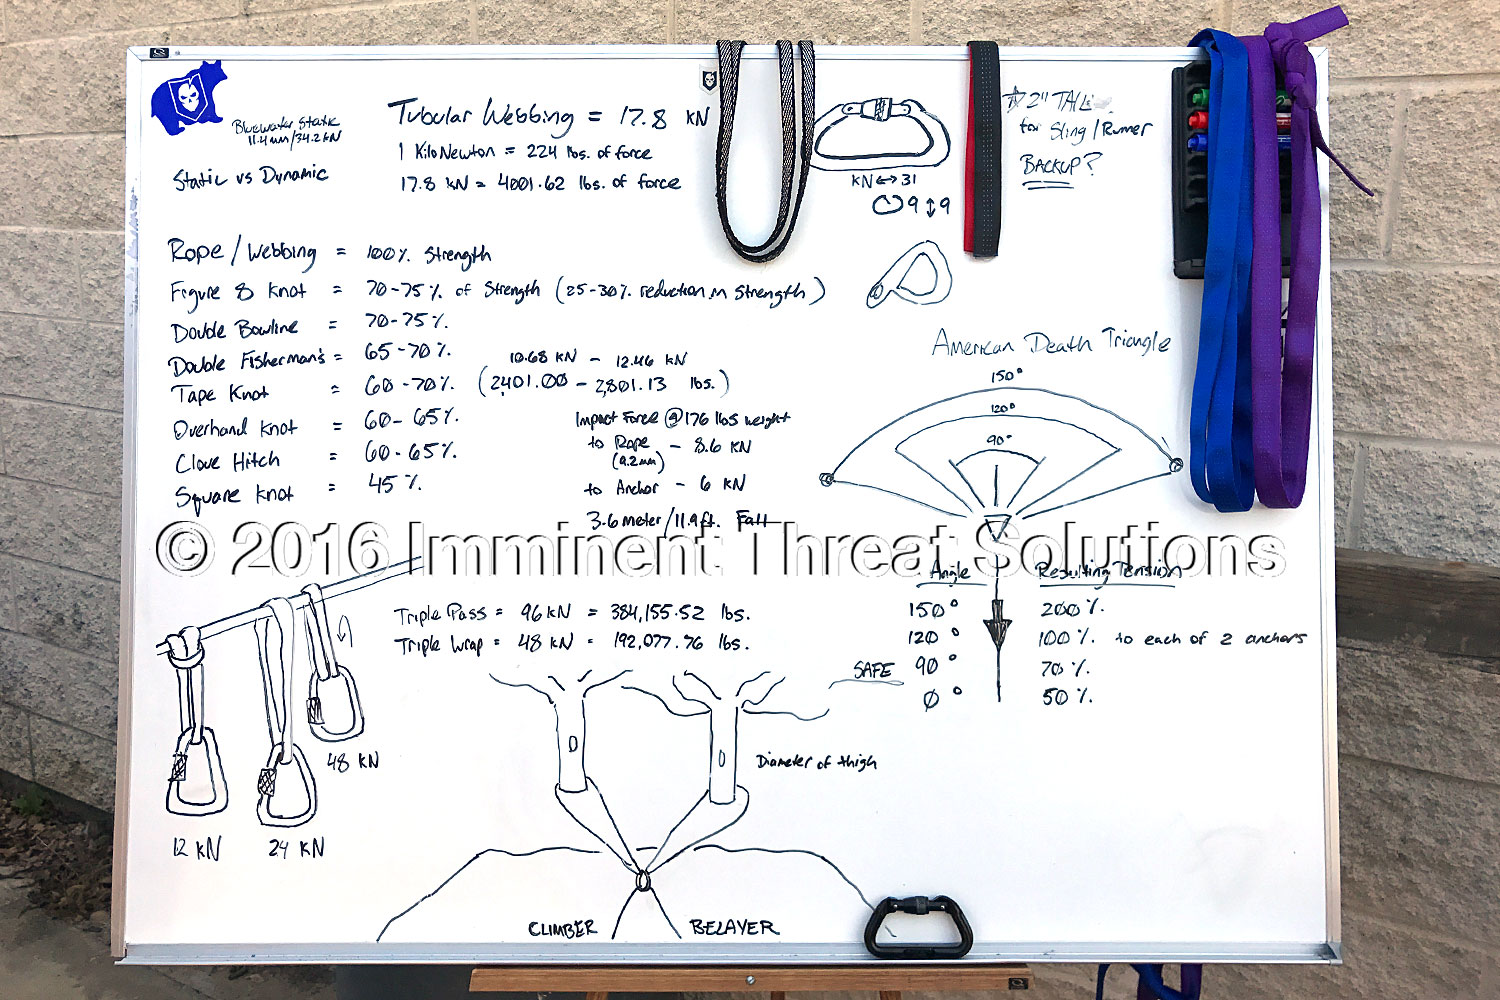 Bluewater Static
11.4mm/34.2kN
Static vs Dynamic
Tubular Webbing = 17.8 kN
1 KiloNewton = 224 lbs. of force
17.8 kN = 4001.62 lbs. of force
KN ↔ 31
9 ↕ 9
☆ 2" TAIL
for Sling/Runner
BACKUP?
Rope/Webbing = 100% Strength
Figure 8 Knot = 70-75% of Strength (25-30% reduction in Strength)
Double Bowline = 70-75%
Double Fisherman's = 65-70%
10.68 KN - 12.46 KN
Tape Knot = 60-70% (2,401.00 - 2,801.13 lbs.)
Overhand Knot = 60-65%
Clove Hitch = 60-65%
Square Knot = 45%
Impact Force @ 176 lbs weight
to Rope - 8.6 KN
(9.2mm)
to Anchor - 6 KN
3.6 meter/11.9 ft. Fall
American Death Triangle
150°
120°
90°
© 2016 Imminent Threat Solutions
Angle Resulting Tension
150° 200%
120° 100% to each of 2 anchors
SAFE 90° 70%
0° 50%
Triple Pass = 96 KN = 384,155.52 lbs.
Triple Wrap = 48 KN = 192,077.76 lbs.
48 KN
12 KN
24 KN
Diameter of thigh
CLIMBER
BELAYER